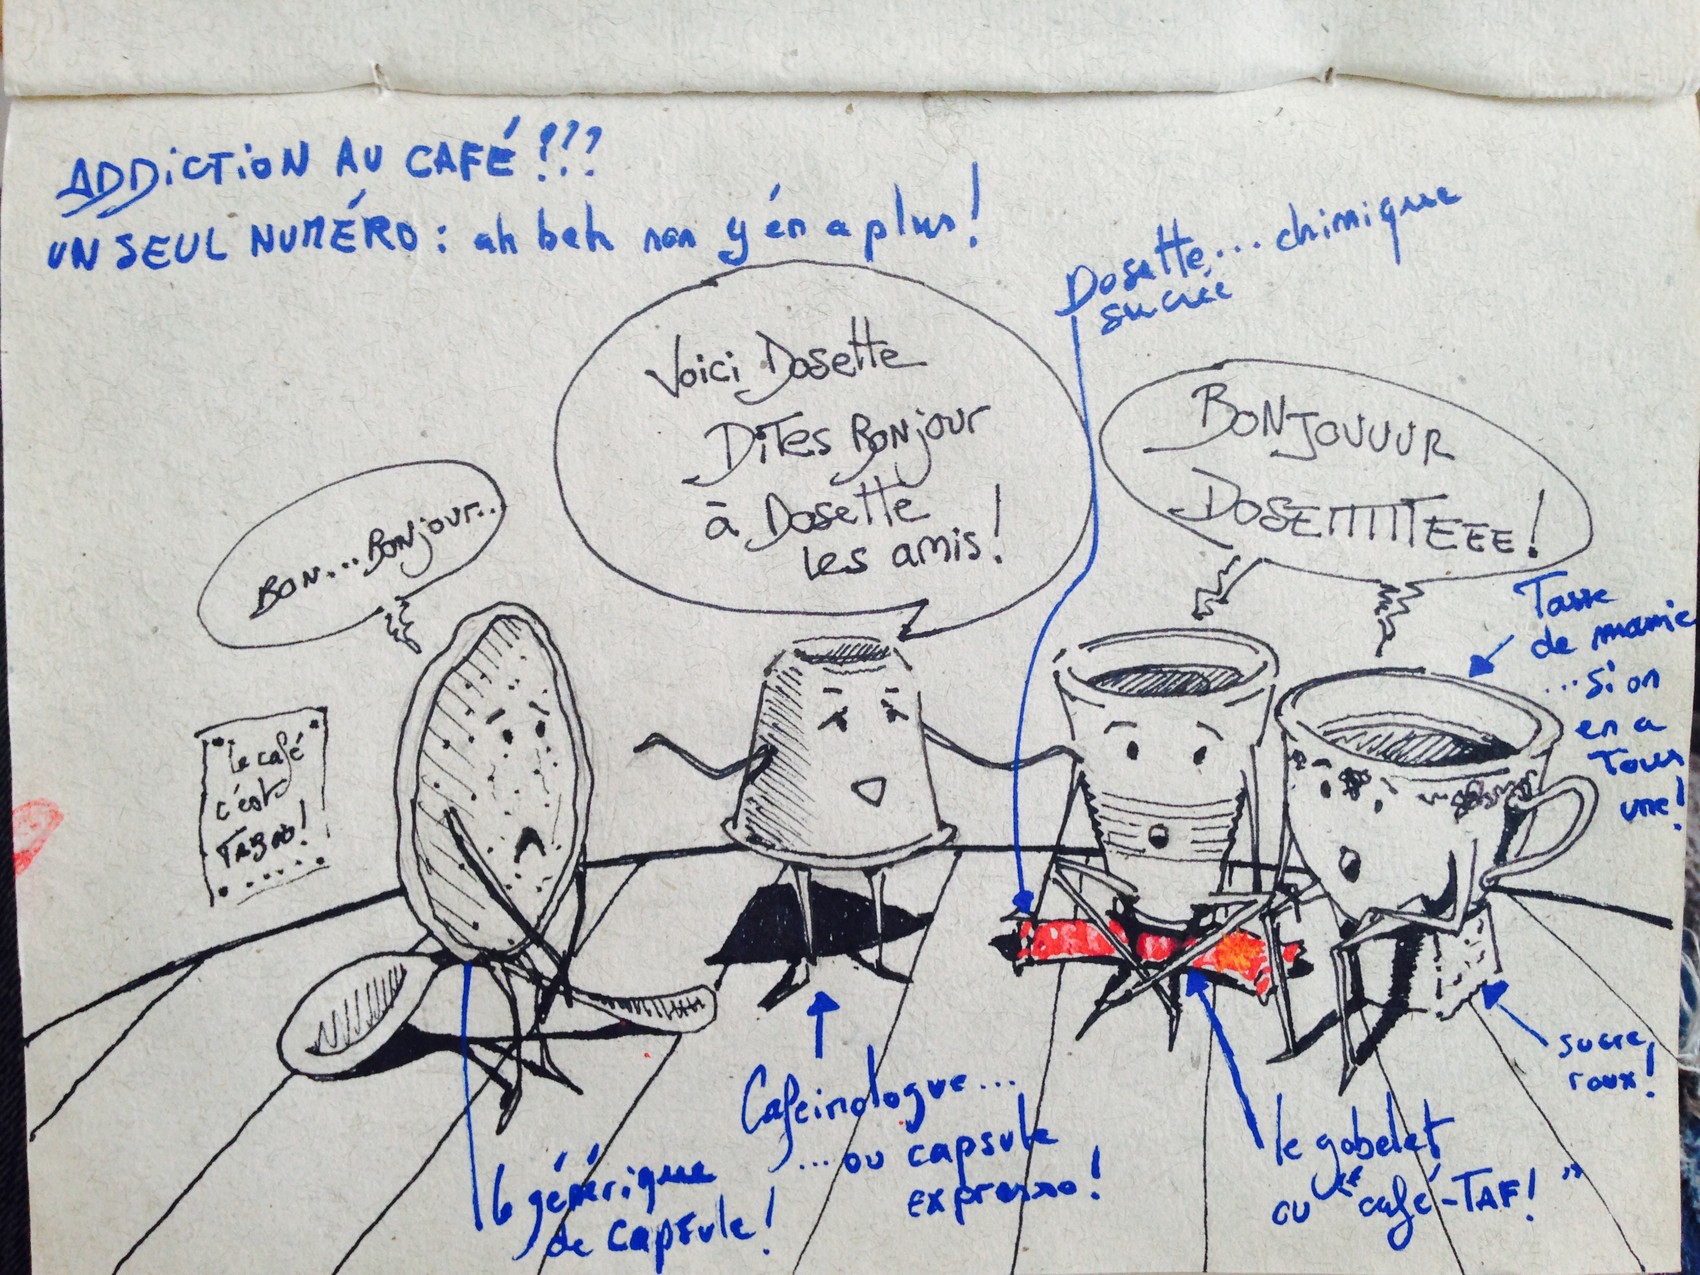 ADDiCTION AU CAFÉ!???
UN SEUL NUMÉRO: ah beh non y'en a plus!
Dosette... chimique
sucrée
Voici Dosette
Dites Bonjour
à Dosette
les amis!
BONJOUUUR
DOSETTTTTEEE!
BON...BONjour...
Tasse
de mamie
...si on
en a
Tous
une!
le café
c'est
TABOO!
sucre
roux!
Caféinologue...
...ou capsule
expresso!
le gobelet
ou "café-TAF!"
le générique
de capsule!